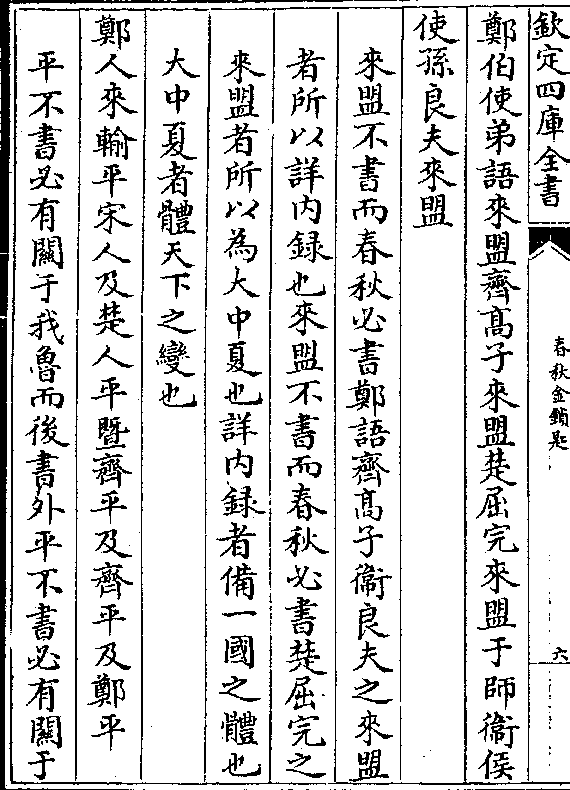 欽定四庫全書
春秋金鎖匙
六
鄭伯使弟語來盟齊髙子來盟楚屈完來盟于師衞侯
使孫良夫來盟
來盟不書而春秋必書鄭語齊髙子衞良夫之來盟
者所以詳内録也來盟不書而春秋必書楚屈完之
來盟者所以為大中夏也詳内録者備一國之體也
大中夏者體天下之變也
鄭人來輸平宋人及楚人平暨齊平及齊平及鄭平
平不書必有關于我魯而後書外平不書必有關于